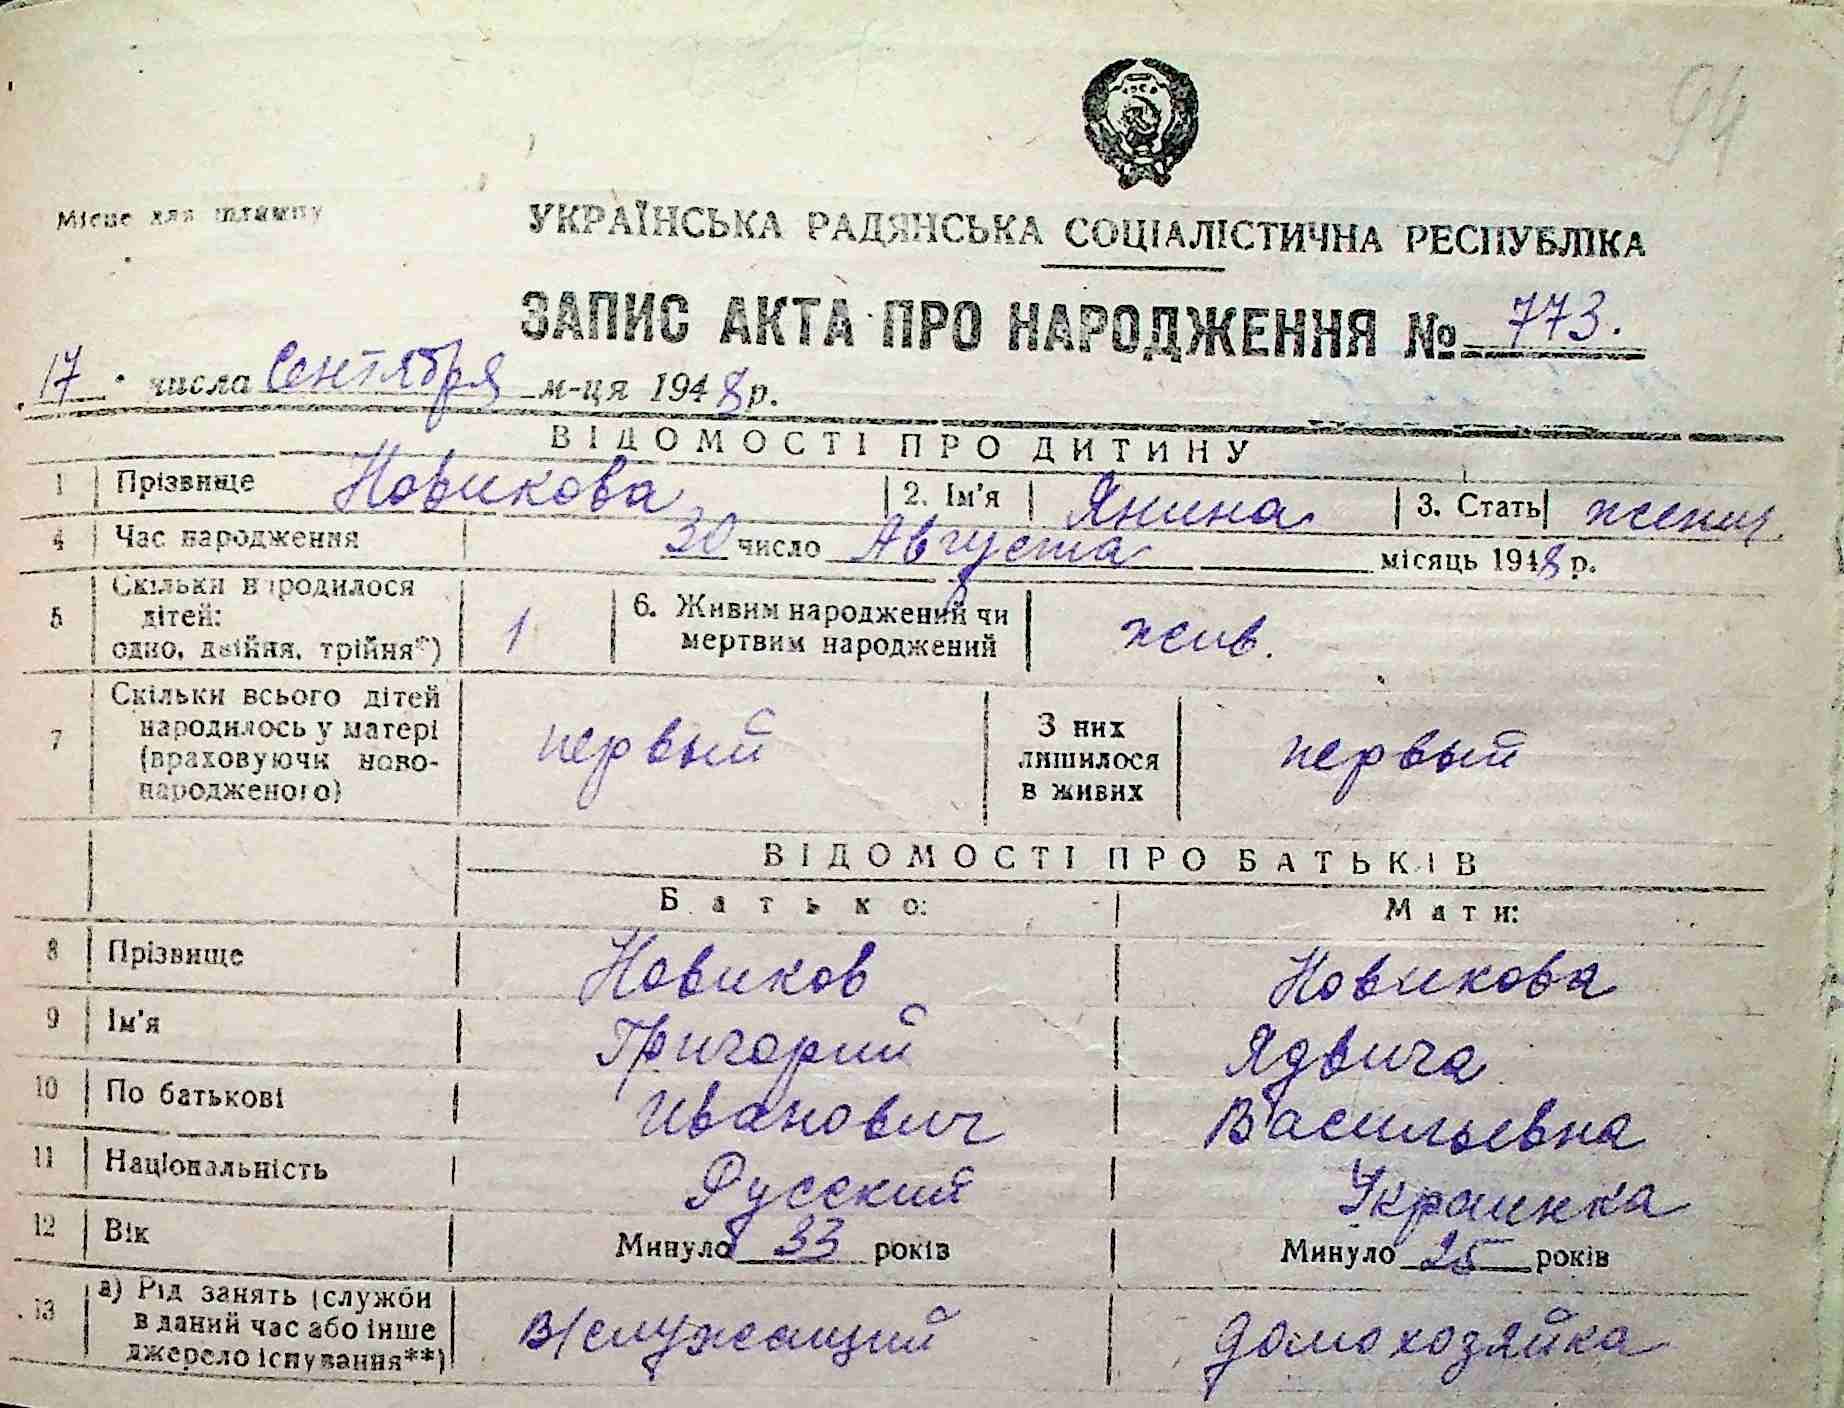 94
Місце для штампу
УКРАЇНСЬКА РАДЯНСЬКА СОЦІАЛІСТИЧНА РЕСПУБЛІКА
ЗАПИС АКТА ПРО НАРОДЖЕННЯ № 773.
17 числа Сентября м-ця 1948 р.
ВІДОМОСТІ ПРО ДИТИНУ
1 Прізвище Новикова 2. Ім'я Янина 3. Стать женск
4 Час народження 30 число Августа місяць 1948 р.
5 Скільки народилося дітей: одно, двійня, трійня*) 1 6. Живим народжений чи мертвим народжений жив.
7 Скільки всього дітей народилось у матері (враховуючи новонародженого) первый З них лишилося в живих первый
ВІДОМОСТІ ПРО БАТЬКІВ
Батько: Мати:
8 Прізвище Новиков Новикова
9 Ім'я Григорий Ядвига
10 По батькові Иванович Васильевна
11 Національність Русский Украинка
12 Вік Минуло 33 років Минуло 25 років
13 а) Рід занять (служби в даний час або інше джерело існування**) В/служащий домохозяйка